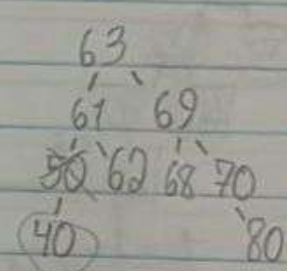 63
61 69
50 62 68 70
40 80